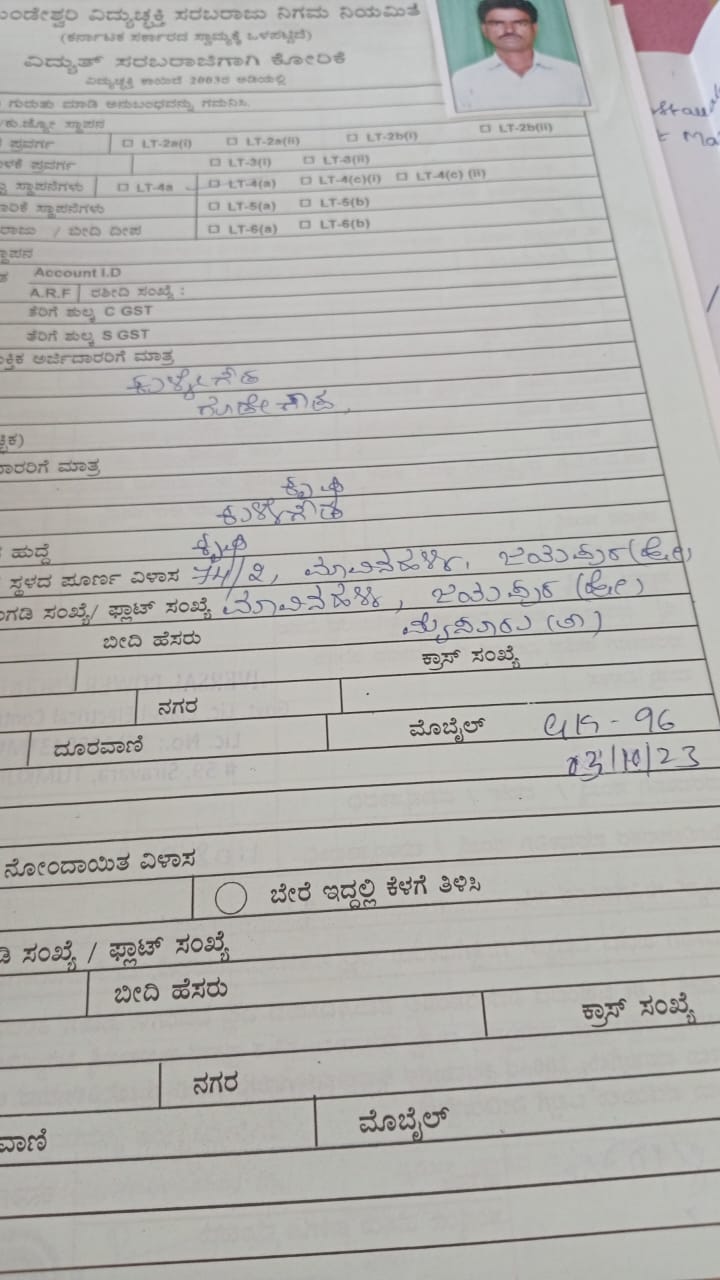 ಂಡೇಶ್ವರಿ ವಿದ್ಯುಚ್ಛಕ್ತಿ ಸರಬರಾಜು ನಿಗಮ ನಿಯಮಿತ
(ಕರ್ನಾಟಕ ಸರ್ಕಾರದ ಸ್ವಾಮ್ಯಕ್ಕೆ ಒಳಪಟ್ಟಿದೆ)
ವಿದ್ಯುತ್ ಸರಬರಾಜಿಗಾಗಿ ಕೋರಿಕೆ
ವಿದ್ಯುಚ್ಛಕ್ತಿ ಕಾಯಿದೆ 2003ರ ಅಡಿಯಲ್ಲಿ
ಗುರುತು ಮಾಡಿ ಅನುಬಂಧವನ್ನು ಗಮನಿಸಿ.
ಸ್ಥಾಪನ
ಪ್ರವರ್ಗ □ LT-2a(i) □ LT-2a(ii) □ LT-2b(i) □ LT-2b(ii)
ಳಕೆ ಪ್ರವರ್ಗ □ LT-3(i) □ LT-3(ii)
ಸ್ಥಾಪನೆಗಳು □ LT-4a □ LT-4(a) □ LT-4(c)(i) □ LT-4(c) (ii)
ಾರಿಕೆ ಸ್ಥಾಪನೆಗಳು □ LT-5(a) □ LT-5(b)
ರಾಜು / ಬೀದಿ ದೀಪ □ LT-6(a) □ LT-6(b)
ಸ್ಥಾಪನ
Account I.D
A.R.F ರಶೀದಿ ಸಂಖ್ಯೆ :
ತೆರಿಗೆ ಶುಲ್ಕ C GST
ತೆರಿಗೆ ಶುಲ್ಕ S GST
ಕ್ತಿಕ ಅರ್ಜಿದಾರರಿಗೆ ಮಾತ್ರ
ಚ್ಛಿಕ)
ದಾರರಿಗೆ ಮಾತ್ರ
ಕೃಷಿ
ಹುದ್ದೆ ಕೃಷಿ
ಸ್ಥಳದ ಪೂರ್ಣ ವಿಳಾಸ 74/2, ಮಾವಿನಹಳ್ಳಿ, ಜಯಪುರ(ಹೋ)
ಂಗಡಿ ಸಂಖ್ಯೆ/ ಫ್ಲಾಟ್ ಸಂಖ್ಯೆ ಮಾವಿನಹಳ್ಳಿ, ಜಯಪುರ (ಹೋ)
ಬೀದಿ ಹೆಸರು ಮೈಸೂರು (ತಾ)
ಕ್ರಾಸ್ ಸಂಖ್ಯೆ
ನಗರ
ದೂರವಾಣಿ ಮೊಬೈಲ್
03/10/23
ನೋಂದಾಯಿತ ವಿಳಾಸ
ಬೇರೆ ಇದ್ದಲ್ಲಿ ಕೆಳಗೆ ತಿಳಿಸಿ
ಡಿ ಸಂಖ್ಯೆ / ಫ್ಲಾಟ್ ಸಂಖ್ಯೆ
ಬೀದಿ ಹೆಸರು
ಕ್ರಾಸ್ ಸಂಖ್ಯೆ
ನಗರ
ವಾಣಿ ಮೊಬೈಲ್